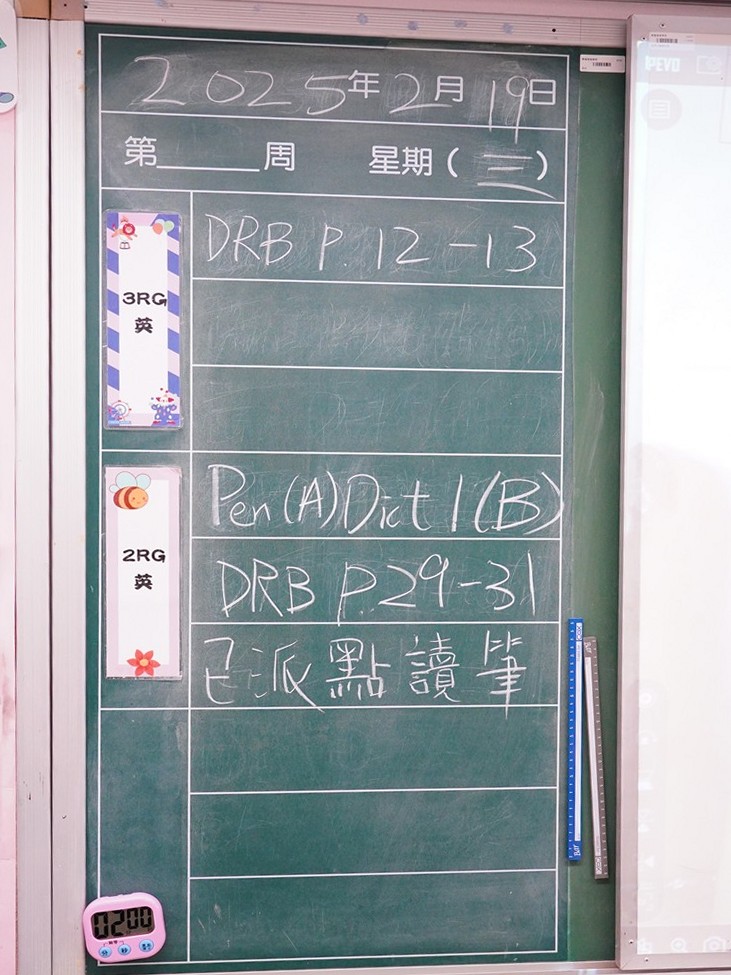 2025年2月19日
第____周 星期（三）
3RG
英
DRB P.12-13
2RG
英
Pen(A)Dict 1(B)
DRB P.29-31
已派點讀筆
0200
IPEVO